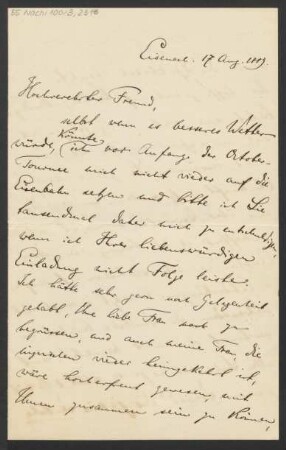 Eisenach. 17 Aug. 1889.
Hochverehrter Freund,
selbst wenn es besseres Wetter
würde, könnte ich vor Anfang der October-
Tournee mich nicht wieder auf die
Eisenbahn setzen und bitte ich Sie
tausendmal daher mich zu entschuldigen,
wenn ich Ihrer liebenswürdigen
Einladung nicht Folge leiste.
Ich hätte sehr gern Gelegenheit
gehabt, Ihre liebe Frau zu
begrüssen, und auch meine Frau, die
inzwischen wieder heimgekehrt ist,
wäre hocherfreut gewesen, mit
Ihnen zusammen sein zu können,